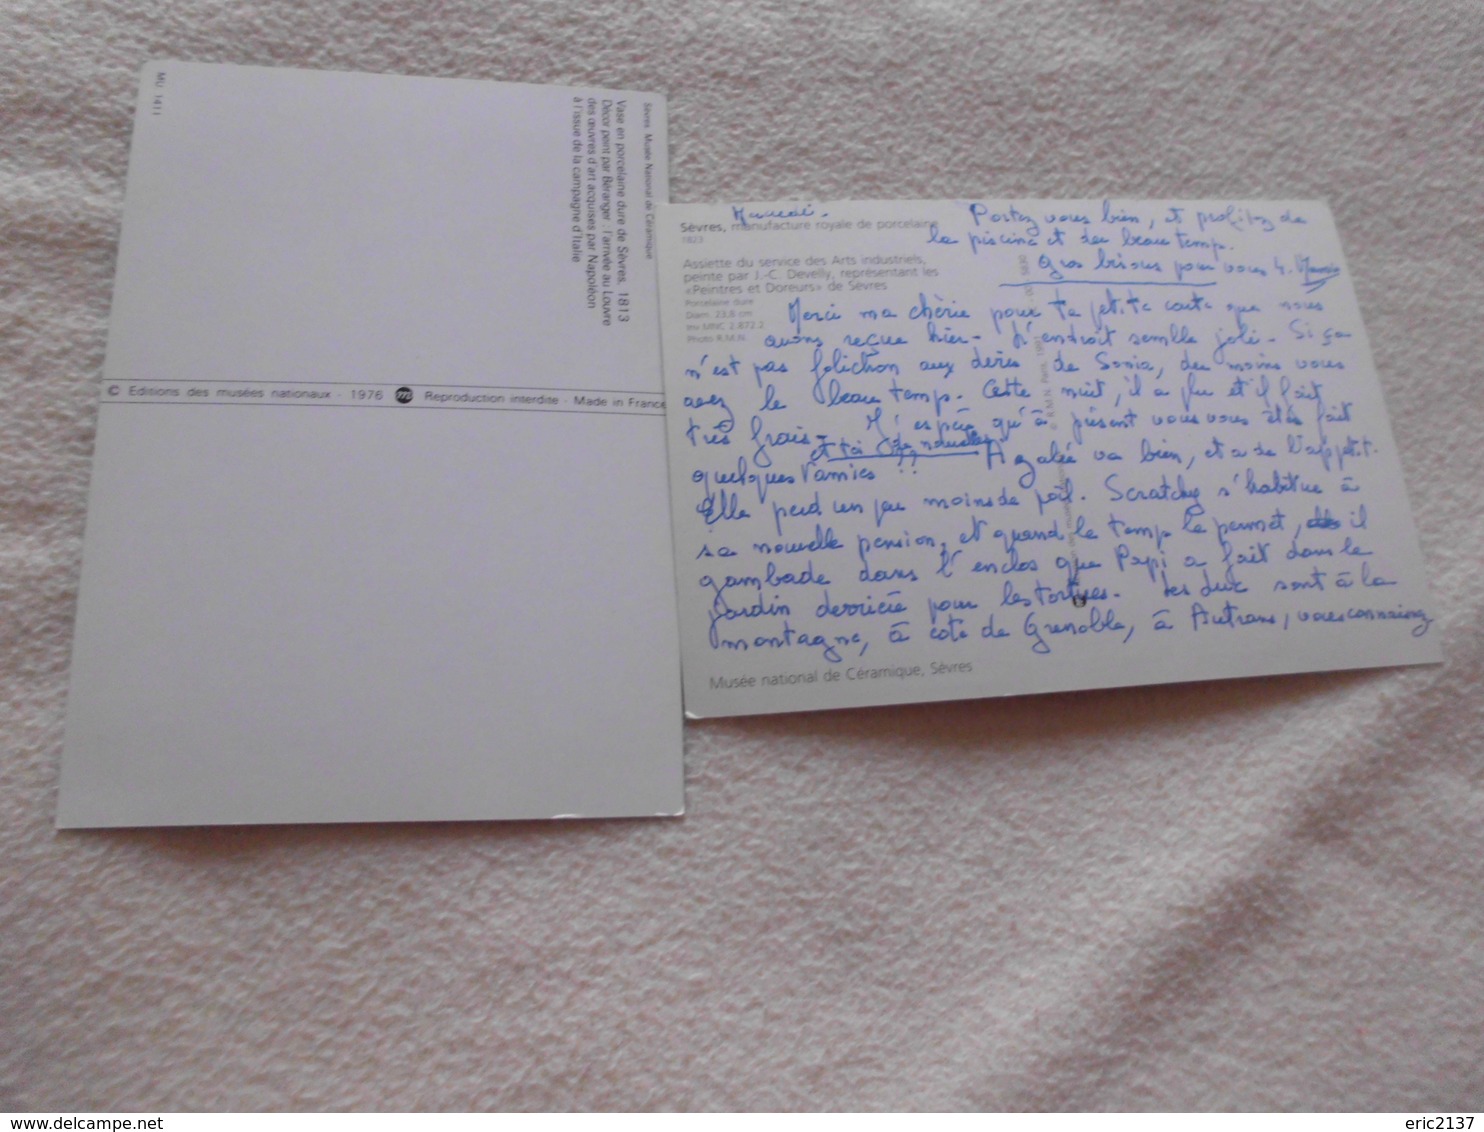 MU 1411
Sèvres Musée National de Céramique
Vase en porcelaine dure de Sèvres. 1813
Décor peint par Béranger : l'arrivée au Louvre
des œuvres d'art acquises par Napoléon
à l'issue de la campagne d'Italie
© Editions des musées nationaux · 1976
Reproduction interdite · Made in France
Sèvres, manufacture royale de porcelaine
1823
Assiette du service des Arts industriels,
peinte par J.-C. Develly, représentant les
«Peintres et Doreurs» de Sèvres
Porcelaine dure
Diam. 23,8 cm
Inv MNC 2.872.2
Photo R.M.N.
Portez vous bien, et profitez de
la piscine et du beau temps.
Gros bisous pour vous 4.
Merci ma chérie pour ta petite carte que nous
avons reçue hier. L'endroit semble joli. Si ça
n'est pas folichon aux dires de Sonia, du moins vous
avez le beau temps. Cette nuit, il a plu et il fait
très frais. J'espère qu'à présent vous vous êtes fait
et toi de nouvelles
quelques amies !! Azalée va bien, et a de l'appétit.
Elle perd un peu moins de poil. Scratchy s'habitue à
sa nouvelle pension, et quand le temps le permet, il
gambade dans l'enclos que Papi a fait dans le
jardin derrière pour les tortues. Les Luc sont à la
montagne, à côté de Grenoble, à Autrans, vous connaissez
Musée national de Céramique, Sèvres
© R.M.N. Paris, 1991
eric2137